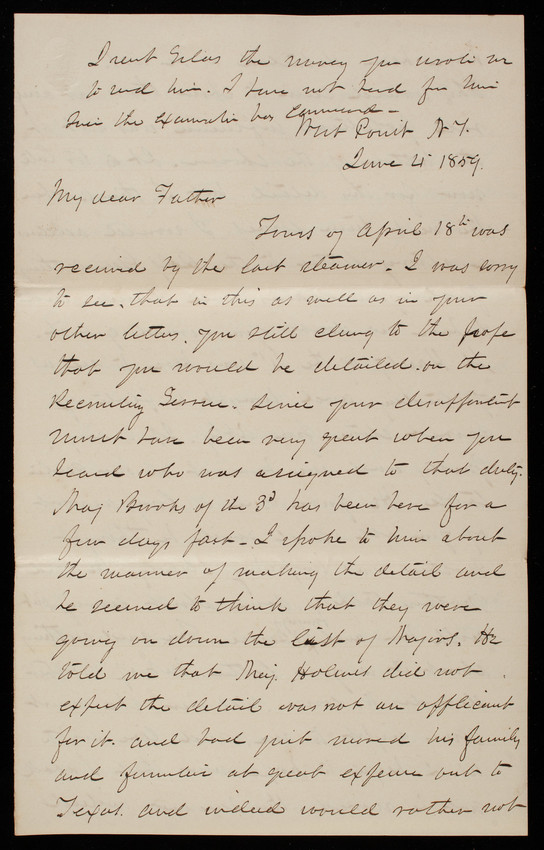 I sent Silas the money you wrote me
to send him. I have not heard from him
since the examination has commenced -
West Point N.Y.
June 4 1859.
My dear Father
Yours of April 18th was
received by the last steamer. I was sorry
to see, that in this as well as in your
other letters, you still clung to the hope
that you would be detailed on the
Recruiting Service. Since your disappointment
must have been very great when you
heard who was assigned to that duty.
Maj Brooks of the 3d has been here for a
few days past - I spoke to him about
the manner of making the detail and
he seemed to think that they were
going on down the list of Majors. He
told me that Maj. Holmes did not
expect the detail was not an applicant
for it. and had just moved his family
and furniture at great expense out to
Texas. and indeed would rather not